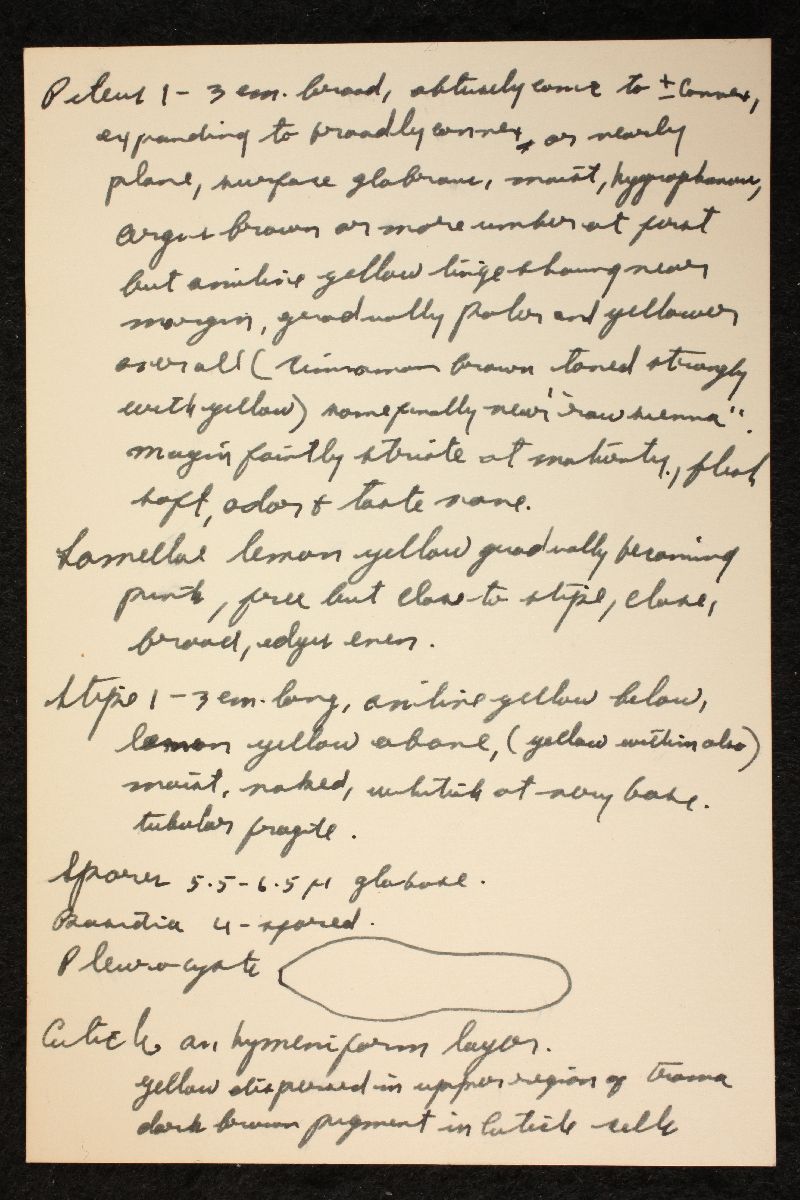 Pileus 1 - 3 cm. broad, obtusely conic to ± convex,
expanding to broadly convex or nearly
plane, surface glabrous, moist, hygrophanous,
argus brown or more umber at first
but aniline yellow tinge showing near
margin, gradually paler and yellower
overall (cinnamon brown toned strongly
with yellow) some finally near "raw sienna".
margin faintly striate at maturity., flesh
soft, odor & taste none.
Lamellae lemon yellow gradually becoming
pink, free but close to stipe, close,
broad, edges even.
Stipe 1 - 3 cm. long, aniline yellow below,
lemon yellow above, (yellow within also)
moist, naked, whitish at very base.
tubular fragile.
Spores 5.5-6.5 µ globose.
Basidia 4-spored.
Pleurocysts
Cuticle an hymeniform layer.
yellow dispersed in upper region of trama
dark brown pigment in cuticle cells